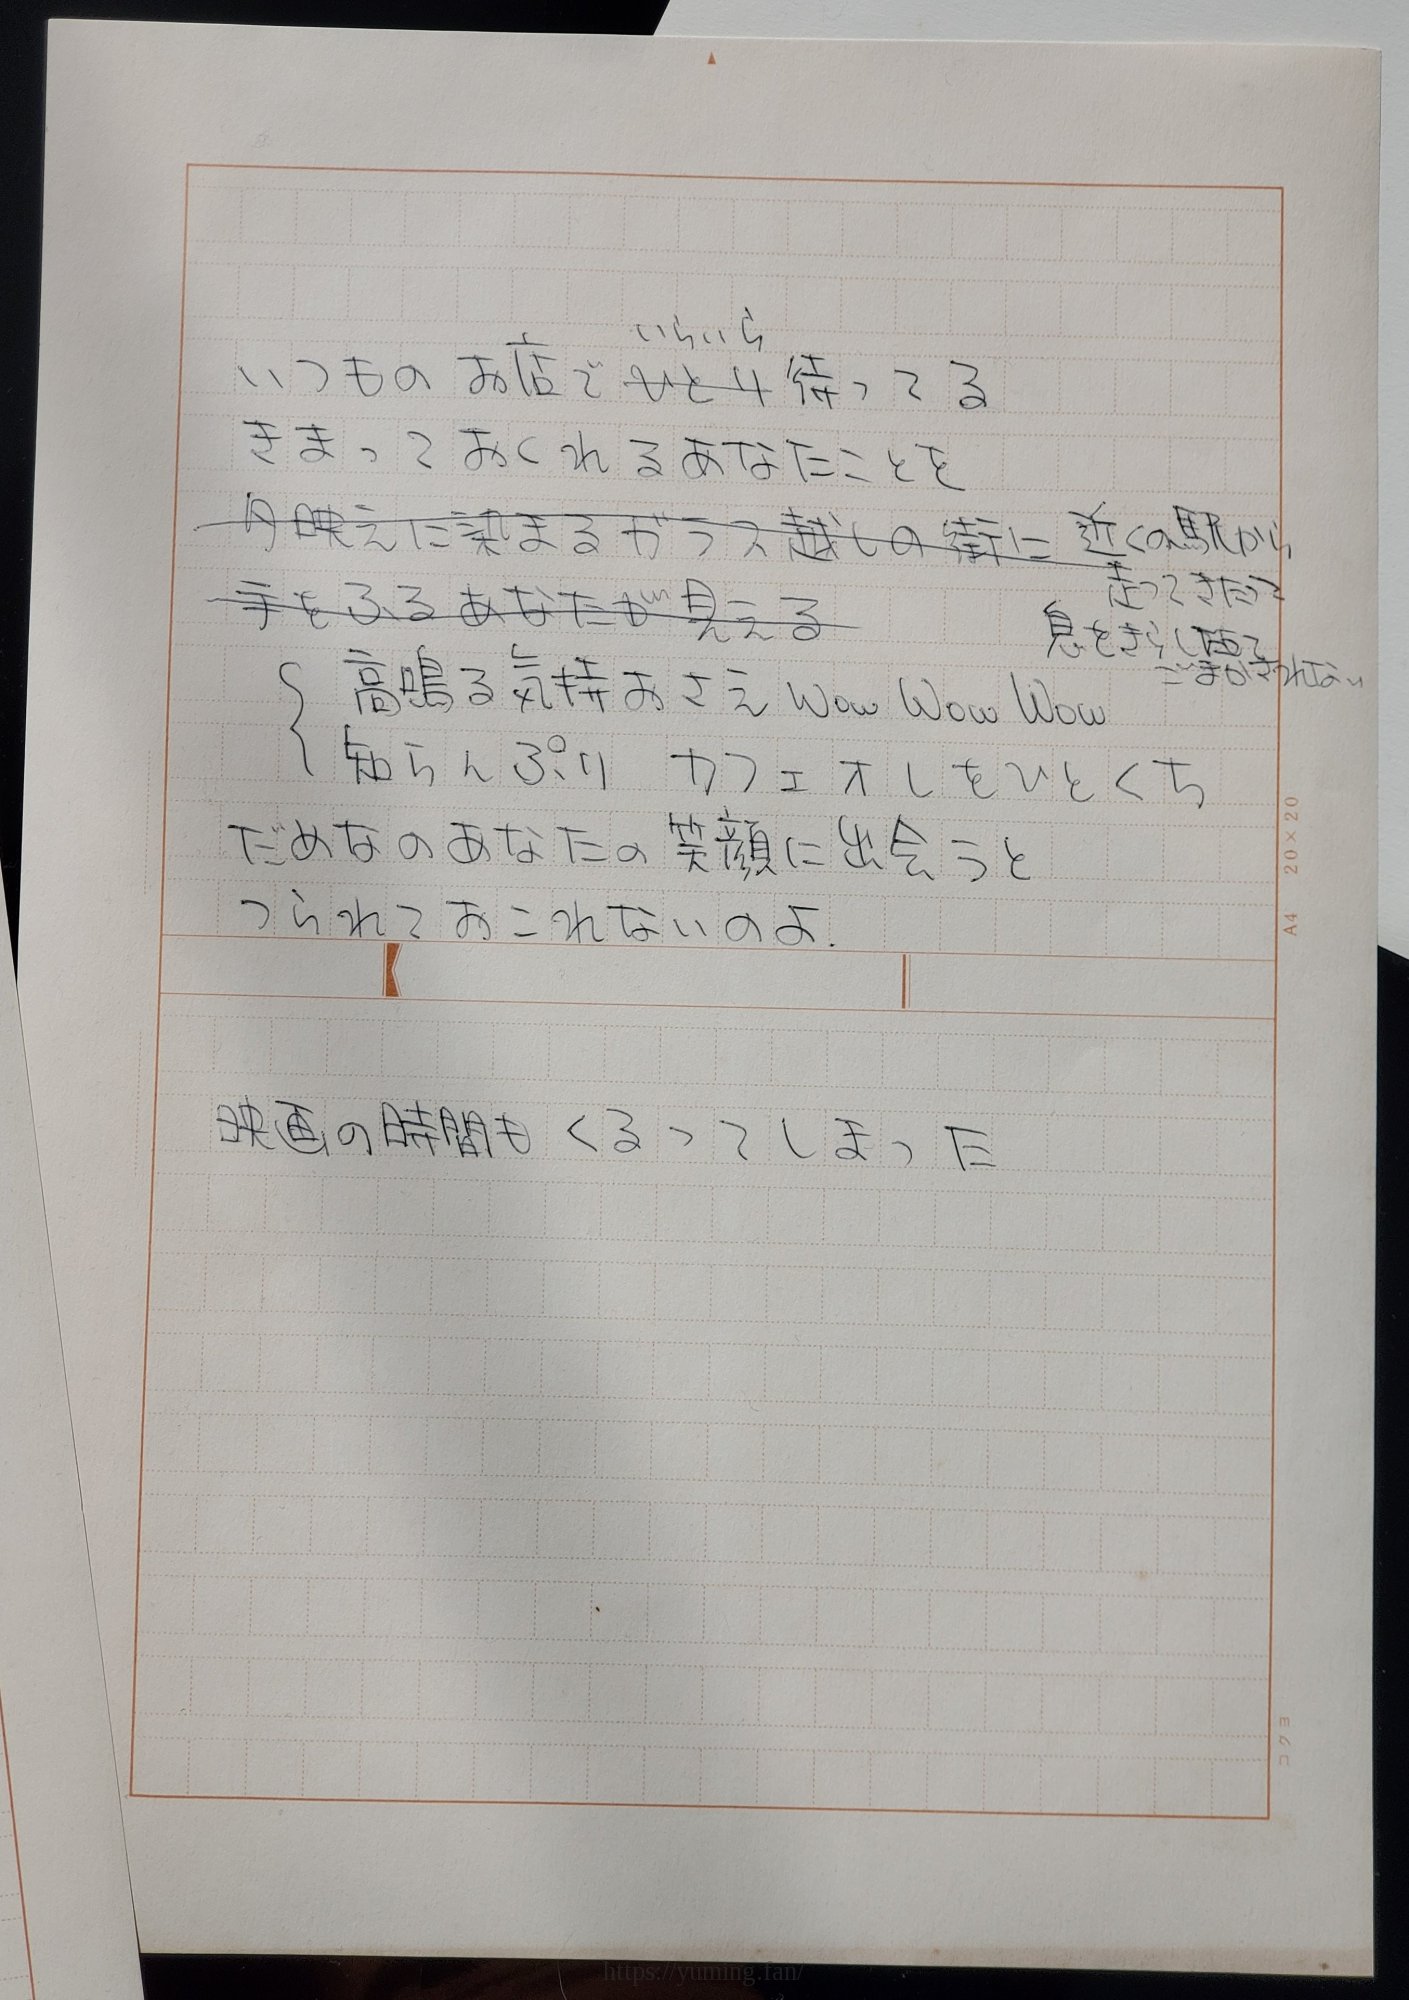 いらいら
いつもの お店で ひとり 待ってる
きまっておくれるあなたことを
夕映えに染まるガラス越しの街に 近くの駅から
走ってきたって
手をふるあなたが見える
息をきらし
ごまかされない
高鳴る気持おさえ Wow Wow Wow
知らんぷり カフェオレをひとくち
だめなのあなたの笑顔に出会うと
つられておこれないのよ.
映画の時間もくるってしまった
A4 20×20
コクヨ
https://yuming.fan/